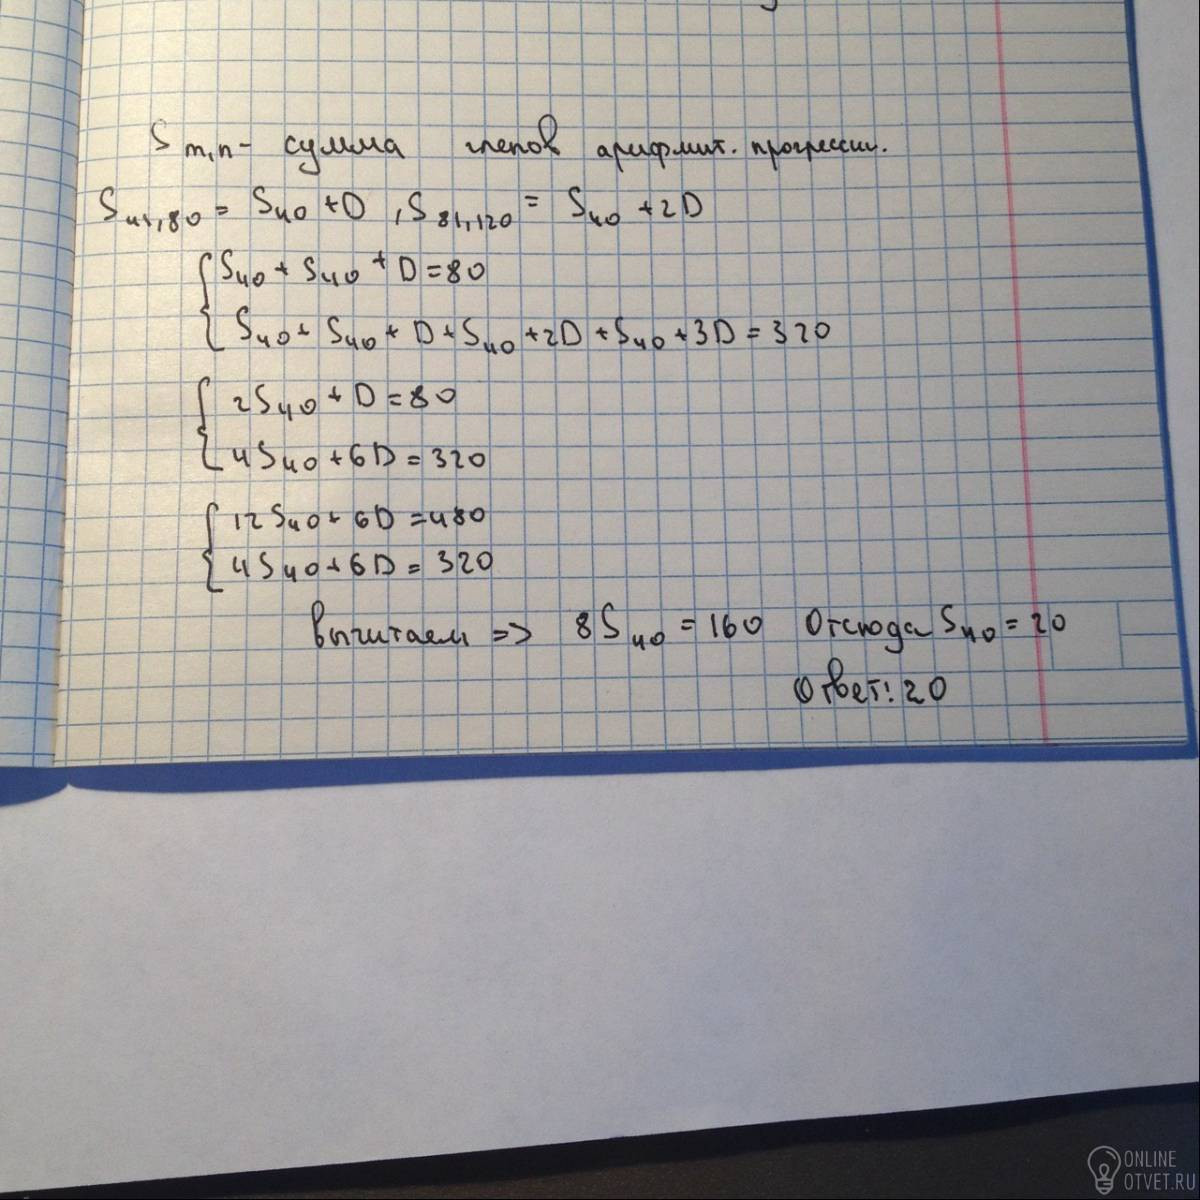 S m,n - сумма членов арифмит. прогрессии.
S41,80 = S40 + D , S81,120 = S40 + 2D
S40 + S40 + D = 80
S40 + S40 + D + S40 + 2D + S40 + 3D = 320
2S40 + D = 80
4S40 + 6D = 320
12S40 + 6D = 480
4S40 + 6D = 320
вычитаем => 8S40 = 160 Отсюда S40 = 20
Ответ: 20
ONLINE
OTVET.RU